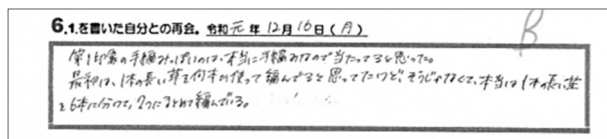 6.1.を書いた自分との再会。令和元年12月16日(月)
B
第1印象の手編みっぽいのは、本当に手編みなので当たってると思った。
最初は、1本の長い草を何本か使って編んでると思ってたけど、そうじゃなくて、本当は1本の長い茎
を6本に分けて、2つにまとめて編んでいる。